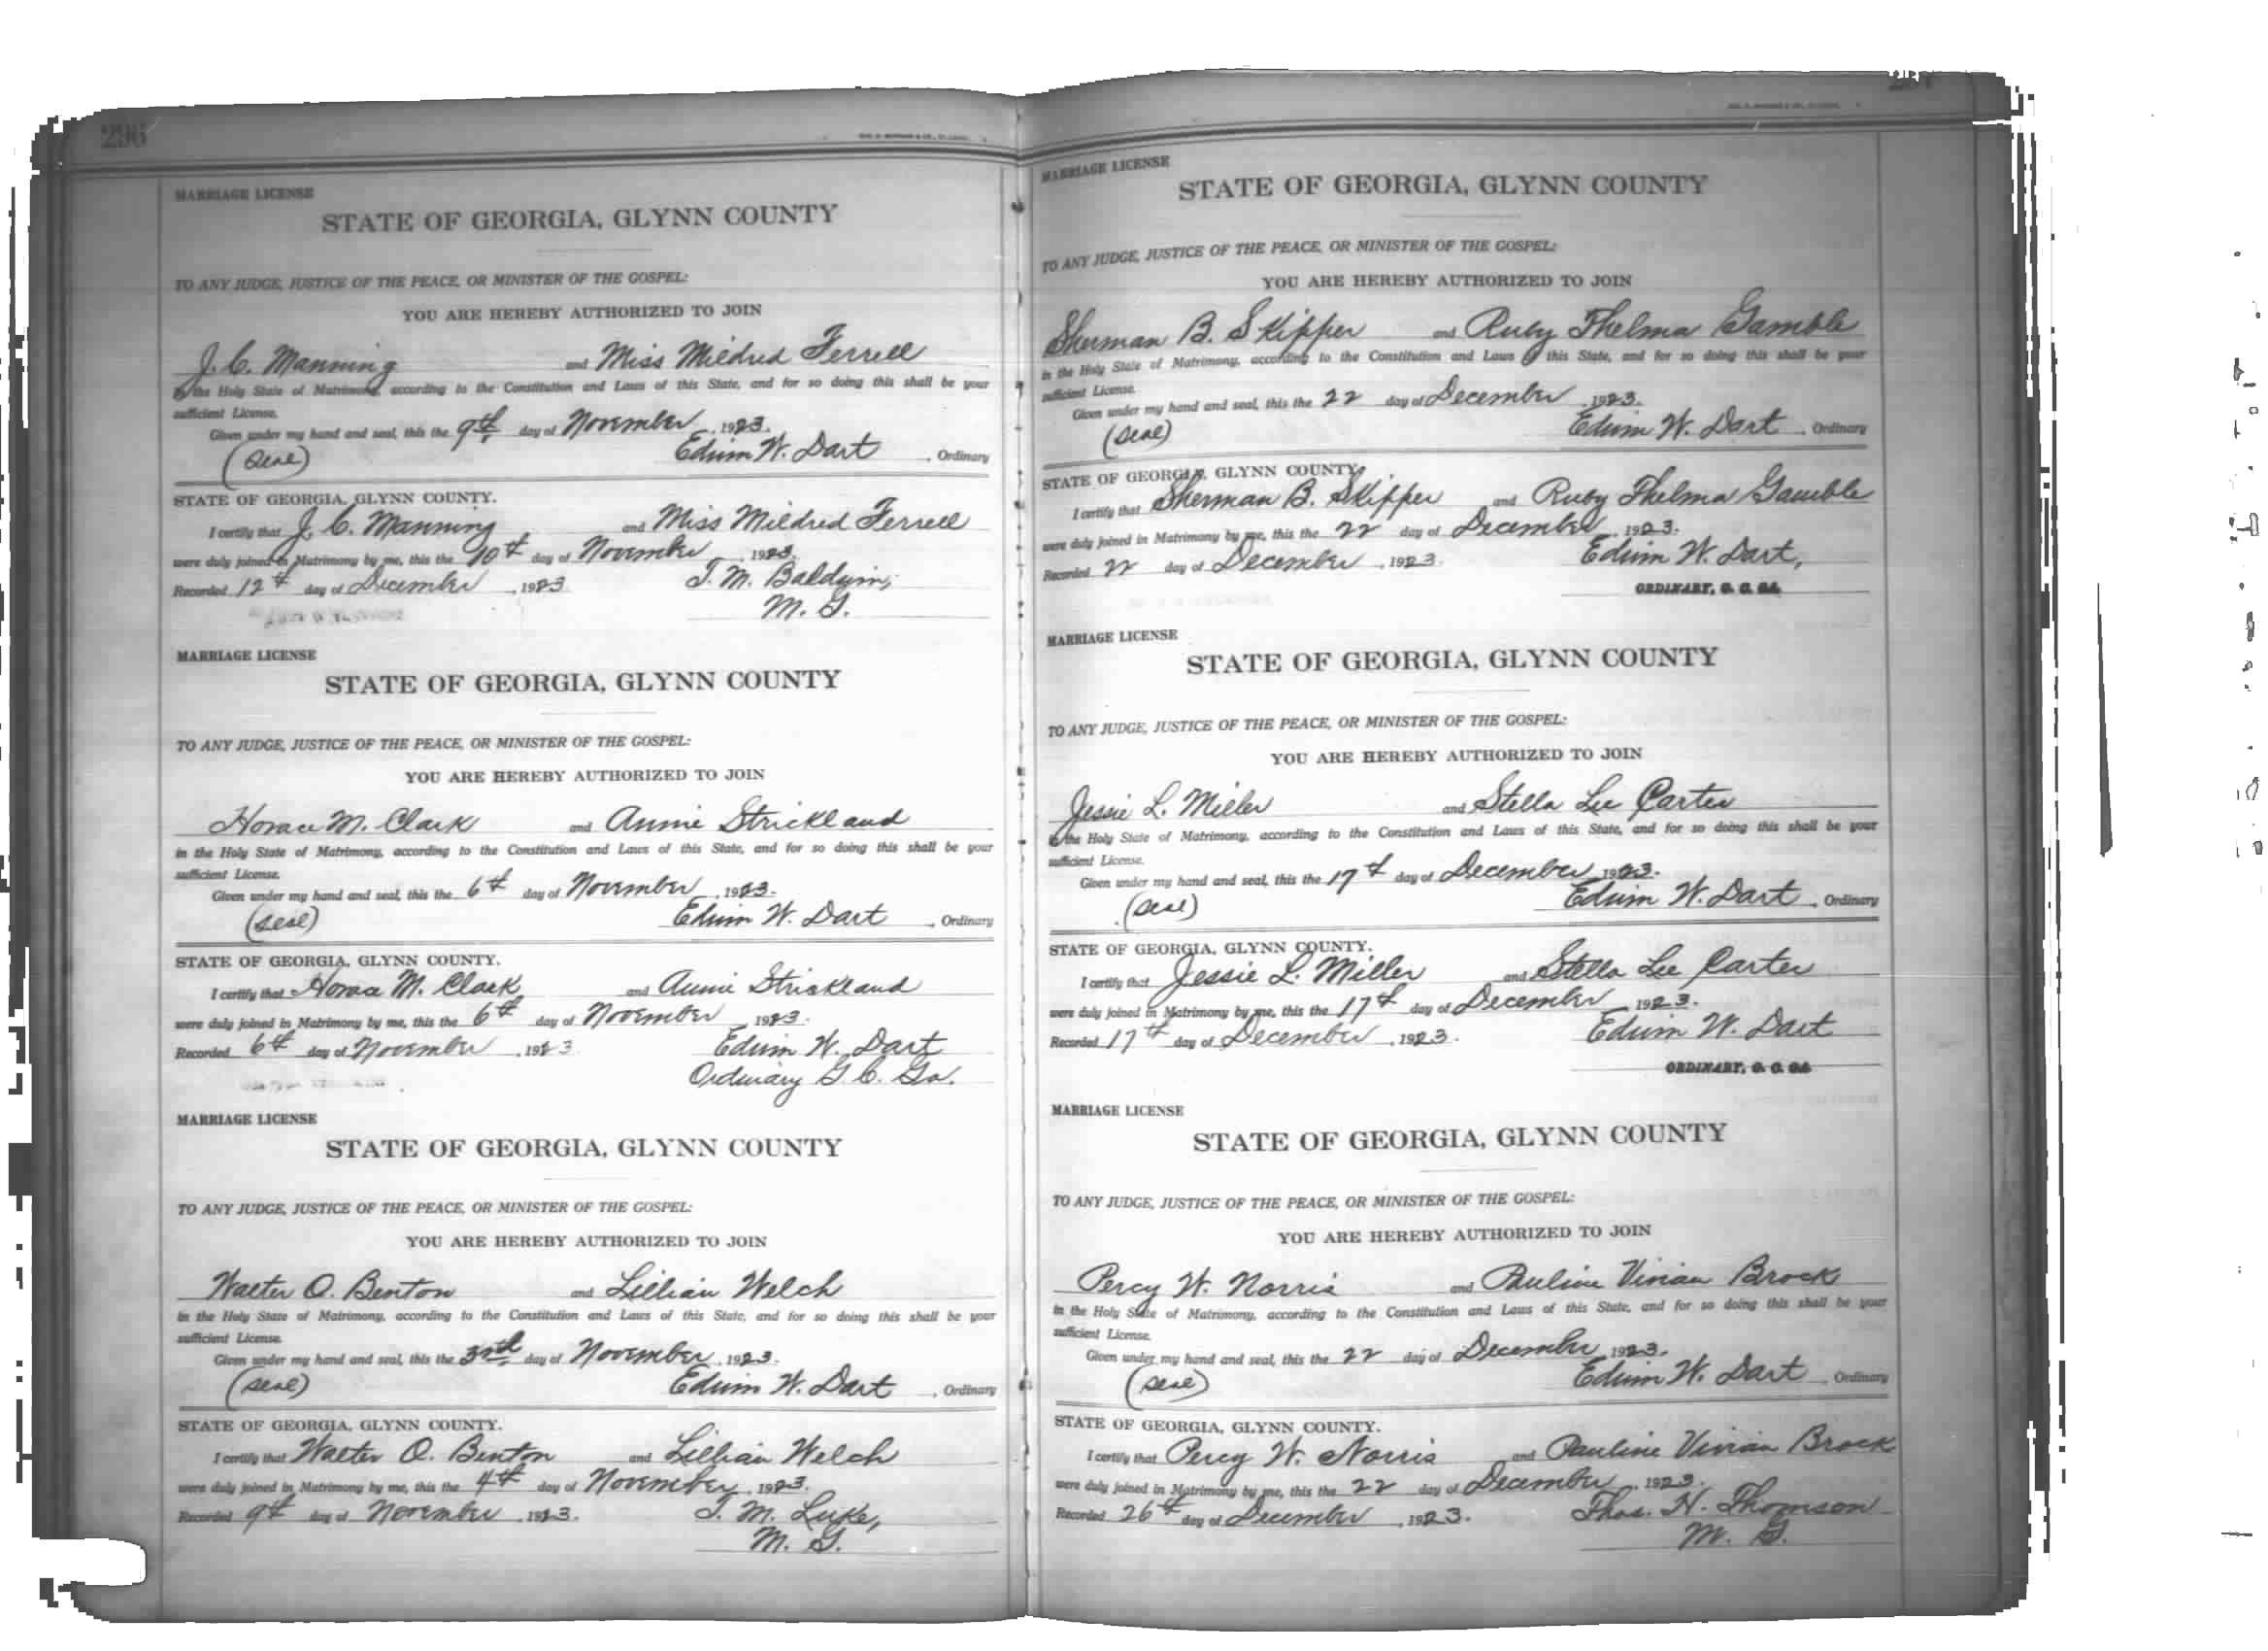 296
MARRIAGE LICENSE
STATE OF GEORGIA, GLYNN COUNTY
TO ANY JUDGE, JUSTICE OF THE PEACE, OR MINISTER OF THE GOSPEL:
YOU ARE HEREBY AUTHORIZED TO JOIN
J. C. Manning and Miss Mildred Ferrell
in the Holy State of Matrimony, according to the Constitution and Laws of this State, and for so doing this shall be your
sufficient License.
Given under my hand and seal, this the 9th day of November, 1923.
(Seal) Edwin W. Dart, Ordinary
STATE OF GEORGIA, GLYNN COUNTY.
I certify that J. C. Manning and Miss Mildred Ferrell
were duly joined in Matrimony by me, this the 10th day of November, 1923.
Recorded 12th day of December, 1923 J. M. Baldwin,
M. G.
MARRIAGE LICENSE
STATE OF GEORGIA, GLYNN COUNTY
TO ANY JUDGE, JUSTICE OF THE PEACE, OR MINISTER OF THE GOSPEL:
YOU ARE HEREBY AUTHORIZED TO JOIN
Horace M. Clark and Annie Strickland
in the Holy State of Matrimony, according to the Constitution and Laws of this State, and for so doing this shall be your
sufficient License.
Given under my hand and seal, this the 6th day of November, 1923.
(Seal) Edwin W. Dart, Ordinary
STATE OF GEORGIA, GLYNN COUNTY.
I certify that Horace M. Clark and Annie Strickland
were duly joined in Matrimony by me, this the 6th day of November, 1923.
Recorded 6th day of November, 1923 Edwin W. Dart
Ordinary G. C. Ga.
MARRIAGE LICENSE
STATE OF GEORGIA, GLYNN COUNTY
TO ANY JUDGE, JUSTICE OF THE PEACE, OR MINISTER OF THE GOSPEL:
YOU ARE HEREBY AUTHORIZED TO JOIN
Walter O. Benton and Lillian Welch
in the Holy State of Matrimony, according to the Constitution and Laws of this State, and for so doing this shall be your
sufficient License.
Given under my hand and seal, this the day of November, 1923.
(Seal) Edwin W. Dart, Ordinary
STATE OF GEORGIA, GLYNN COUNTY.
I certify that Walter O. Benton and Lillian Welch
were duly joined in Matrimony by me, this the 4th day of November, 1923.
Recorded 9th day of November, 1923. J. M. Luke,
M. G.
MARRIAGE LICENSE
STATE OF GEORGIA, GLYNN COUNTY
TO ANY JUDGE, JUSTICE OF THE PEACE, OR MINISTER OF THE GOSPEL:
YOU ARE HEREBY AUTHORIZED TO JOIN
Sherman B. Skipper and Ruby Thelma Gamble
in the Holy State of Matrimony, according to the Constitution and Laws of this State, and for so doing this shall be your
sufficient License.
Given under my hand and seal, this the 22 day of December, 1923.
(Seal) Edwin W. Dart, Ordinary
STATE OF GEORGIA, GLYNN COUNTY.
I certify that Sherman B. Skipper and Ruby Thelma Gamble
were duly joined in Matrimony by me, this the 22 day of December, 1923.
Recorded 22 day of December, 1923. Edwin W. Dart,
ORDINARY, G. C. GA.
MARRIAGE LICENSE
STATE OF GEORGIA, GLYNN COUNTY
TO ANY JUDGE, JUSTICE OF THE PEACE, OR MINISTER OF THE GOSPEL:
YOU ARE HEREBY AUTHORIZED TO JOIN
Jessie L. Miller and Stella Lee Carter
in the Holy State of Matrimony, according to the Constitution and Laws of this State, and for so doing this shall be your
sufficient License.
Given under my hand and seal, this the 17th day of December, 1923.
(Seal) Edwin W. Dart, Ordinary
STATE OF GEORGIA, GLYNN COUNTY.
I certify that Jessie L. Miller and Stella Lee Carter
were duly joined in Matrimony by me, this the 17th day of December, 1923.
Recorded 17th day of December, 1923. Edwin W. Dart
ORDINARY, G. C. GA.
MARRIAGE LICENSE
STATE OF GEORGIA, GLYNN COUNTY
TO ANY JUDGE, JUSTICE OF THE PEACE, OR MINISTER OF THE GOSPEL:
YOU ARE HEREBY AUTHORIZED TO JOIN
Percy W. Norris and Pauline Vivian Brock
in the Holy State of Matrimony, according to the Constitution and Laws of this State, and for so doing this shall be your
sufficient License.
Given under my hand and seal, this the 22 day of December, 1923.
(Seal) Edwin W. Dart, Ordinary
STATE OF GEORGIA, GLYNN COUNTY.
I certify that Percy W. Norris and Pauline Vivian Brock
were duly joined in Matrimony by me, this the 22 day of December, 1923.
Recorded 26th day of December, 1923. Thos. H. Thomson
M. G.